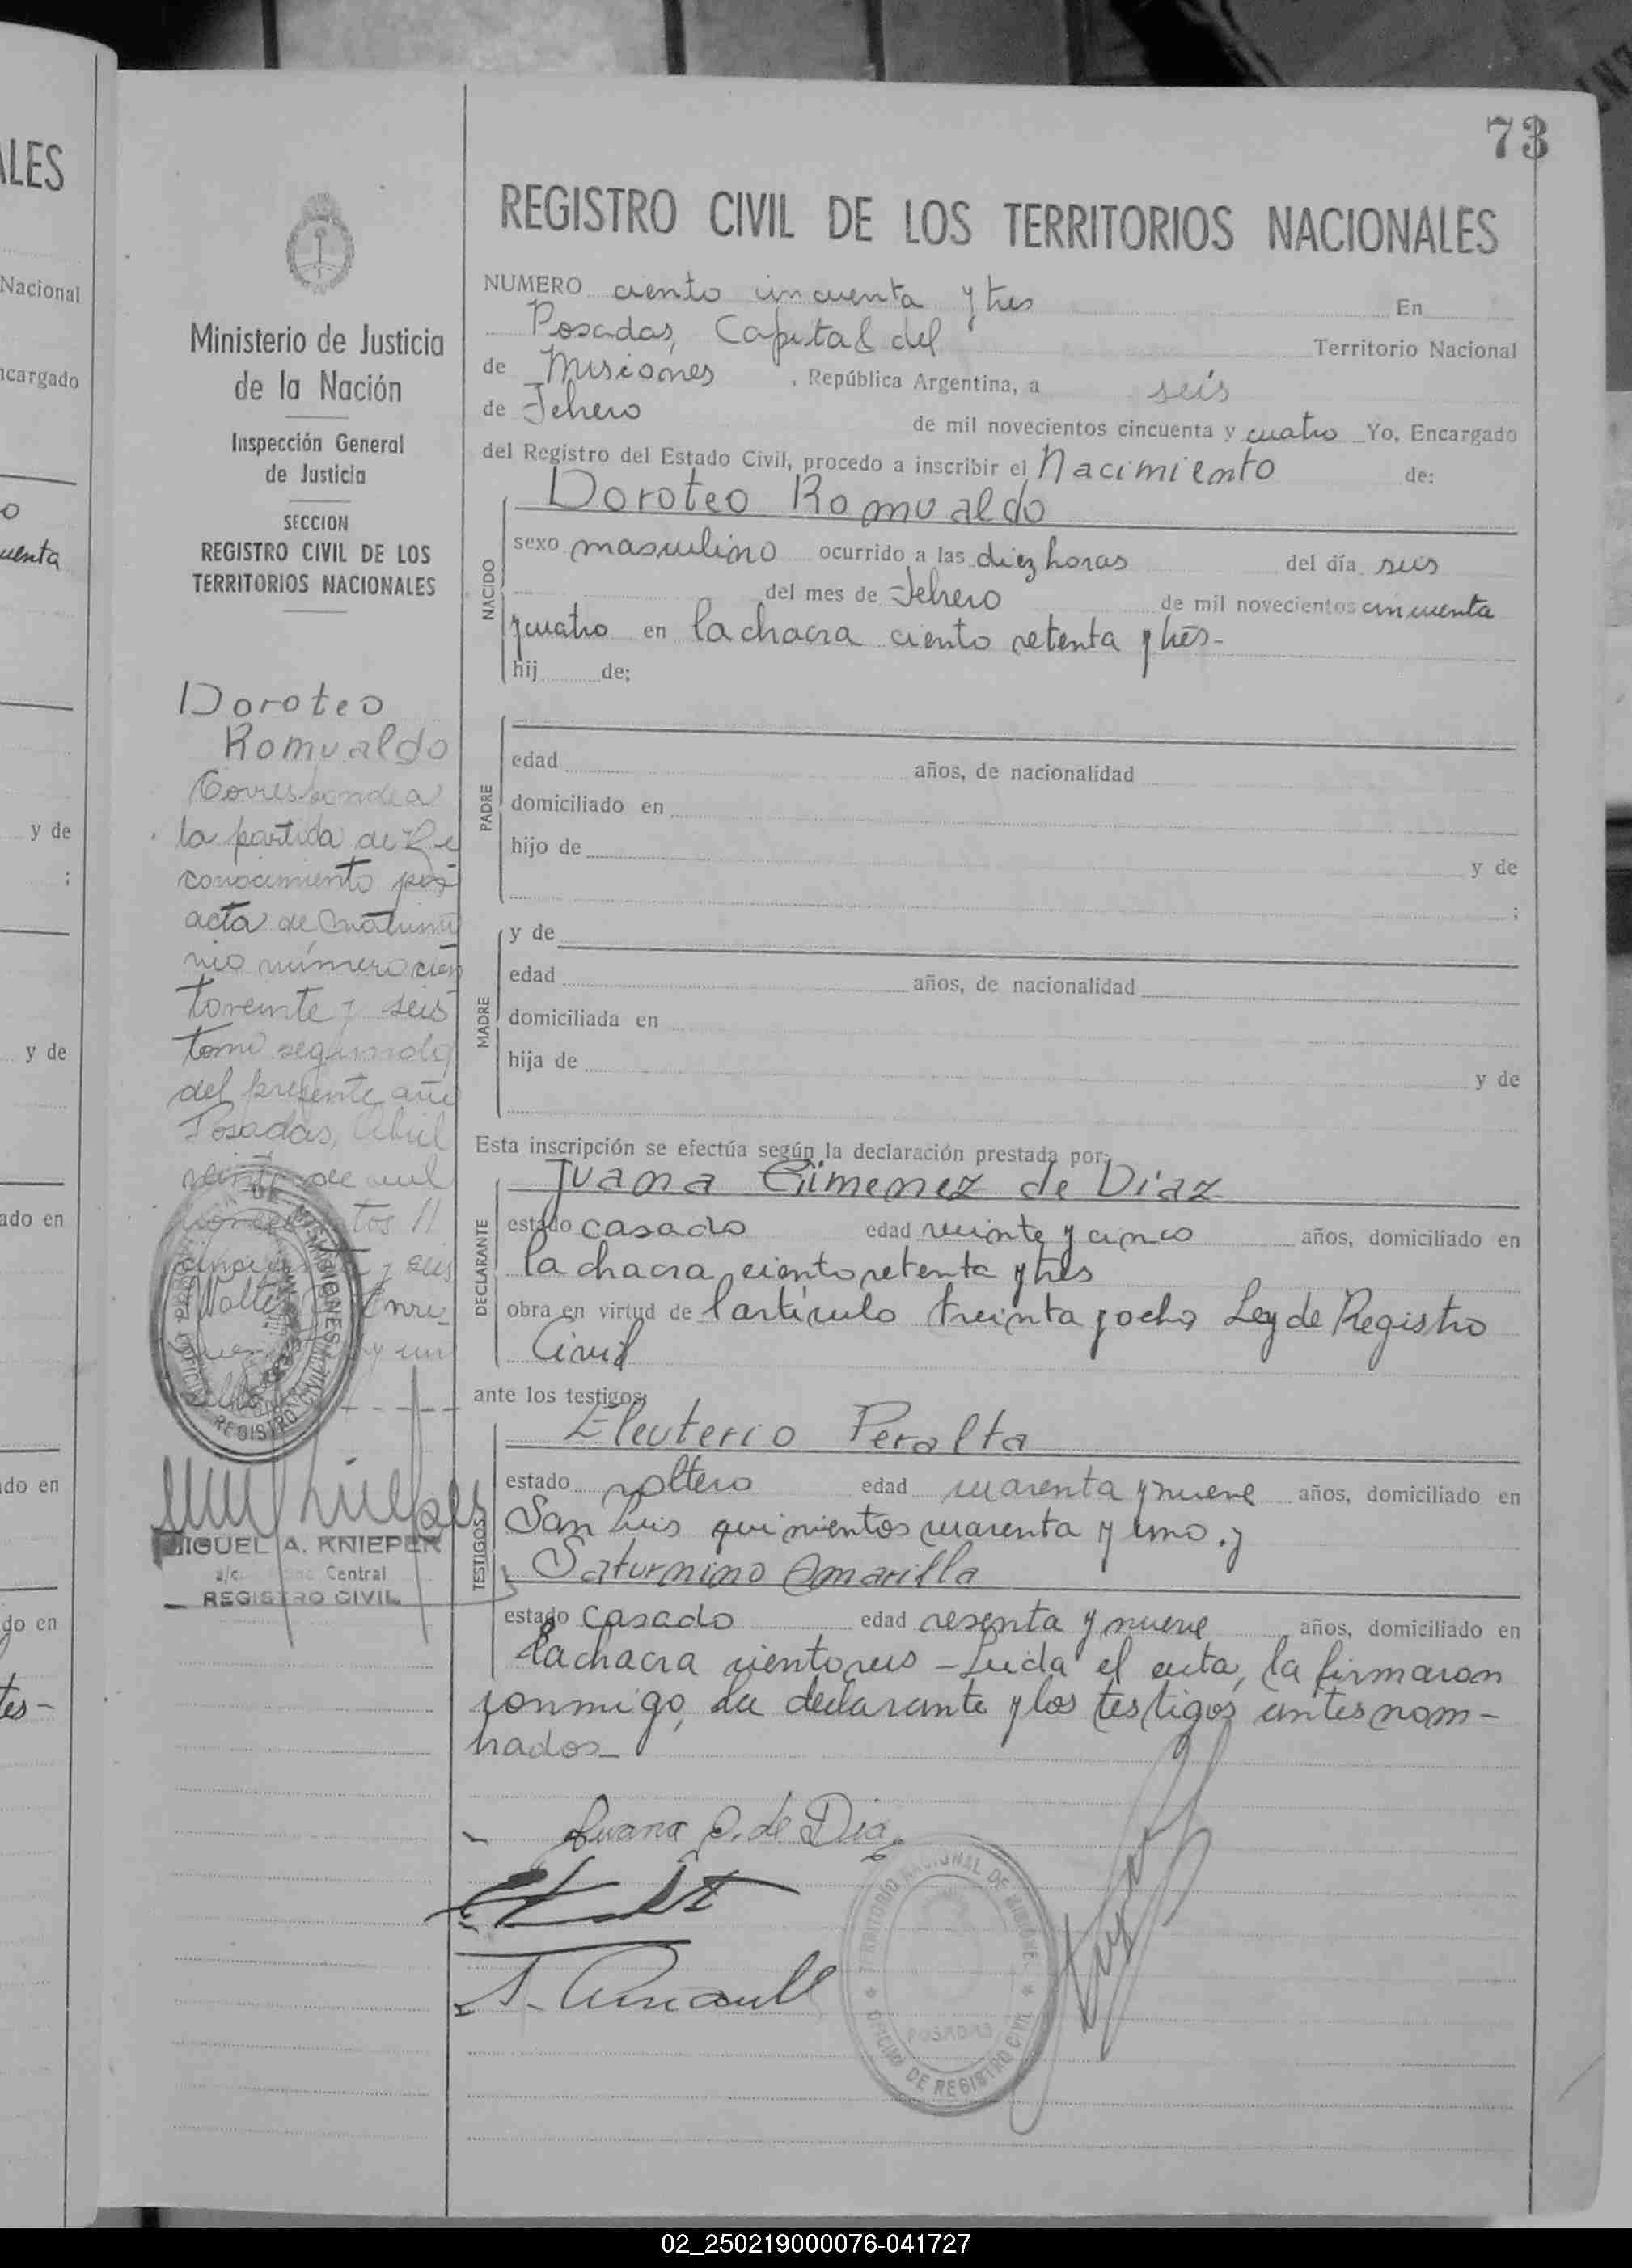 73
REGISTRO CIVIL DE LOS TERRITORIOS NACIONALES
NUMERO ciento cincuenta y tres En
Posadas, Capital del Territorio Nacional
de Misiones , República Argentina, a seis
de Febrero de mil novecientos cincuenta y cuatro Yo, Encargado
del Registro del Estado Civil, procedo a inscribir el Nacimiento de:
NACIDO
Doroteo Romualdo
sexo masculino ocurrido a las diez horas del día seis
del mes de Febrero de mil novecientos cincuenta
y cuatro en la chacra ciento setenta y tres-
hij de;
PADRE
edad años, de nacionalidad
domiciliado en
hijo de y de
;
MADRE
y de
edad años, de nacionalidad
domiciliada en
hija de y de
Esta inscripción se efectúa según la declaración prestada por:
DECLARANTE
Juana Gimenez de Diaz
estado casado edad veinte y cinco años, domiciliado en
la chacra ciento setenta y tres
obra en virtud de l artículo treinta y ocho Ley de Registro
Civil
ante los testigos:
TESTIGOS
Eleuterio Peralta
estado soltero edad cuarenta y nueve años, domiciliado en
San Luis quinientos cuarenta y uno . y
Saturnino Amarilla
estado casado edad sesenta y nueve años, domiciliado en
la chacra ciento seis - Leida el acta, la firmaron
conmigo, la declarante y los testigos antes nom-
brados_
Juana G. de Diaz
TERRITORIO NACIONAL DE MISIONES
POSADAS
OFICINA DE REGISTRO CIVIL
Ministerio de Justicia
de la Nación
Inspección General
de Justicia
SECCION
REGISTRO CIVIL DE LOS
TERRITORIOS NACIONALES
Doroteo
Romualdo
Corresponde a
la partida de Re
conocimiento por
acta de matrimo
nio número cien
to veinte y seis
tomo segundo
del presente año
Posadas, Abril
veinte de mil
MISIONES
REGISTRO
MIGUEL A. KNIEPER
a/c. Central
REGISTRO CIVIL
ALES
Nacional
ncargado
o
uenta
y de
;
y de
ado en
do en
do en
tes-
02_250219000076-041727